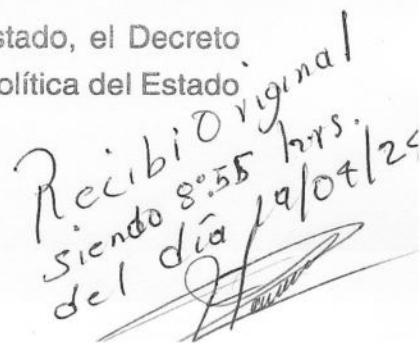 stado, el Decreto
olítica del Estado
Recibi Original
siendo 8:55 hrs.
del día 19/04/24